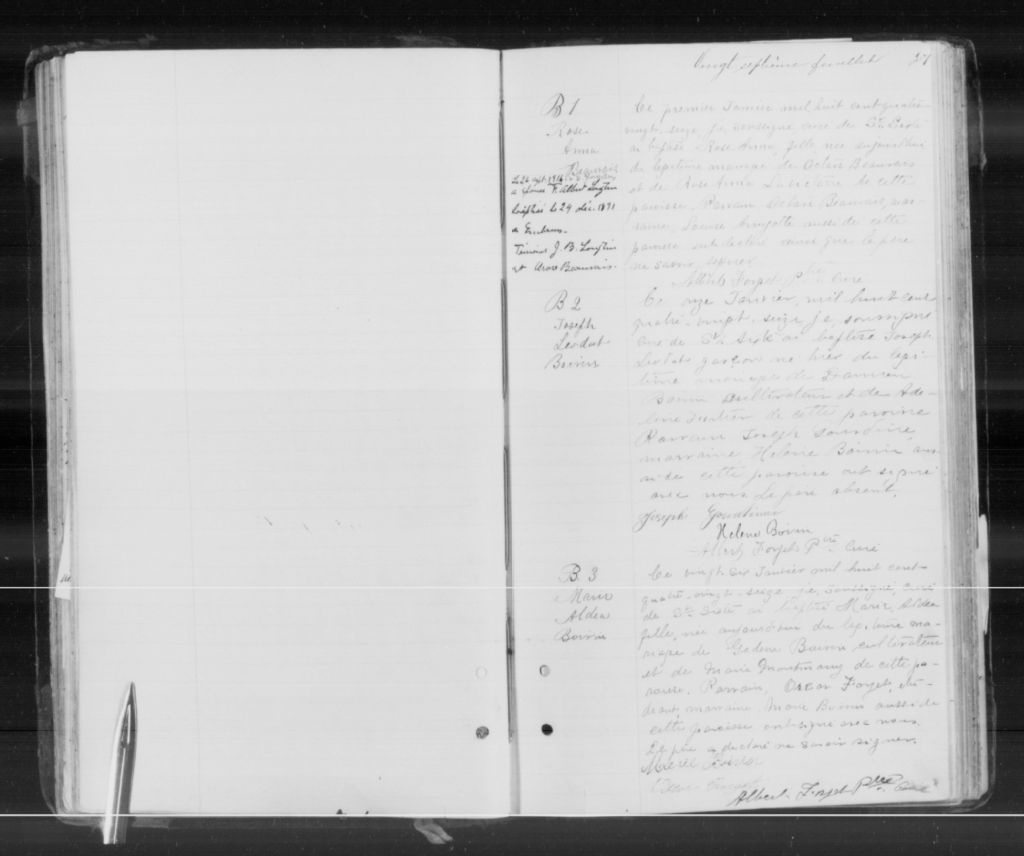 Vingt septième feuillet 27
B 1
Rose
Anna
Beauvais
Le 26 sept. 1916
a épousé F. Albert Longtin
baptisé le 29 déc. 1891
a Embrun.
Témoins J. B. Longtin
et Beauvais.
Ce premier Janvier mil huit cent quatre
vingt seize je, soussigné curé de St. Sixte
ai baptisé Rose Anna fille née aujourd'hui
du légitime mariage de Beauvais
et de Rose Anna de cette
paroisse. Parrain Beauvais, mar-
raine, Louise aussi de cette
paroisse ont déclaré ainsi que le père
ne savoir signer
Albert Forget Ptre Curé
B 2
Joseph
Léodat
Boivin
Ce onze Janvier, mil huit cent
quatre-vingt-seize je, soussigné
curé de St. Sixte ai baptisé Joseph
garçon né hier du légi-
time mariage de Damien
Boivin cultivateur et de Ade-
line de cette paroisse
Parrain Joseph
marraine, Helene Boivin aus-
si de cette paroisse ont signé
avec nous. Le père absent.
Joseph
Helene Boivin
Albert Forget Ptre Curé
B. 3
Marie
Aldea
Boivin
Ce vingt six Janvier mil huit cent
quatre-vingt-seize je, soussigné, Curé
de St. Sixte ai baptisé Marie, Aldea
fille, née aujourd'hui du légitime ma-
riage de Gédéon Boivin cultivateur
et de Marie Montmany de cette pa-
roisse. Parrain, Oscar Forget, étu-
diant marraine, Marie Boivin aussi de
cette paroisse ont signé avec nous.
Le père a déclaré ne savoir signer.
Albert Forget Ptre Curé